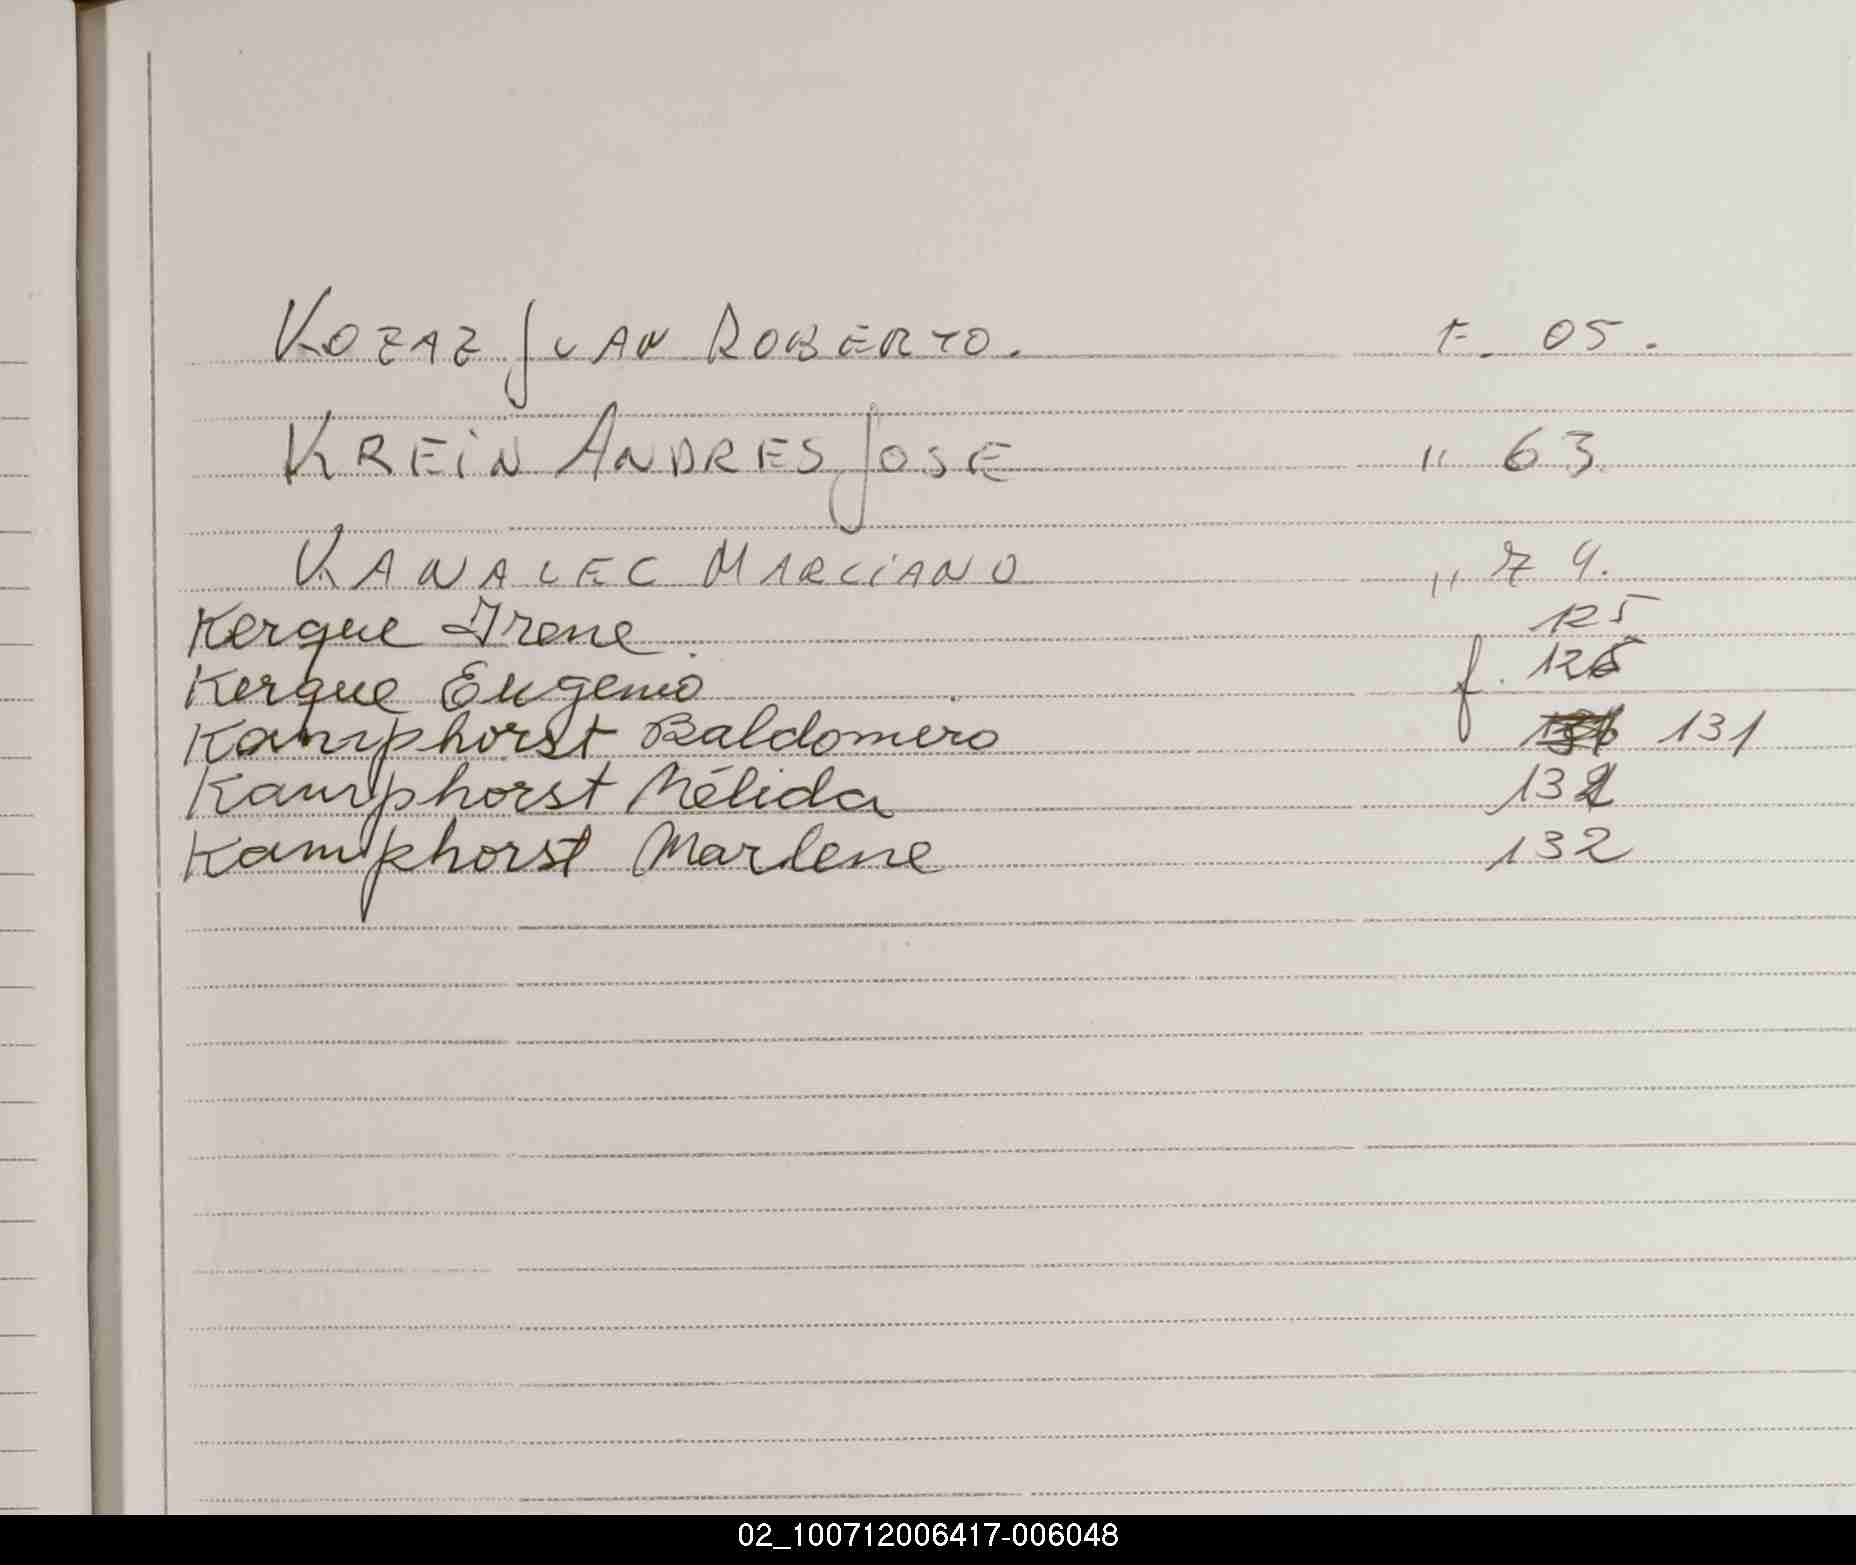 KOZAZ JUAN ROBERTO. F. 05.
KREiN ANDRES JOSE " 63.
KANALEC MARCiANO " 74.
Kerque Irene 125
Kerque Eugenio f. 126
Kamphorst Baldomero 131
Kamphorst Nélida 132
Kamphorst Marlene 132
02_100712006417-006048